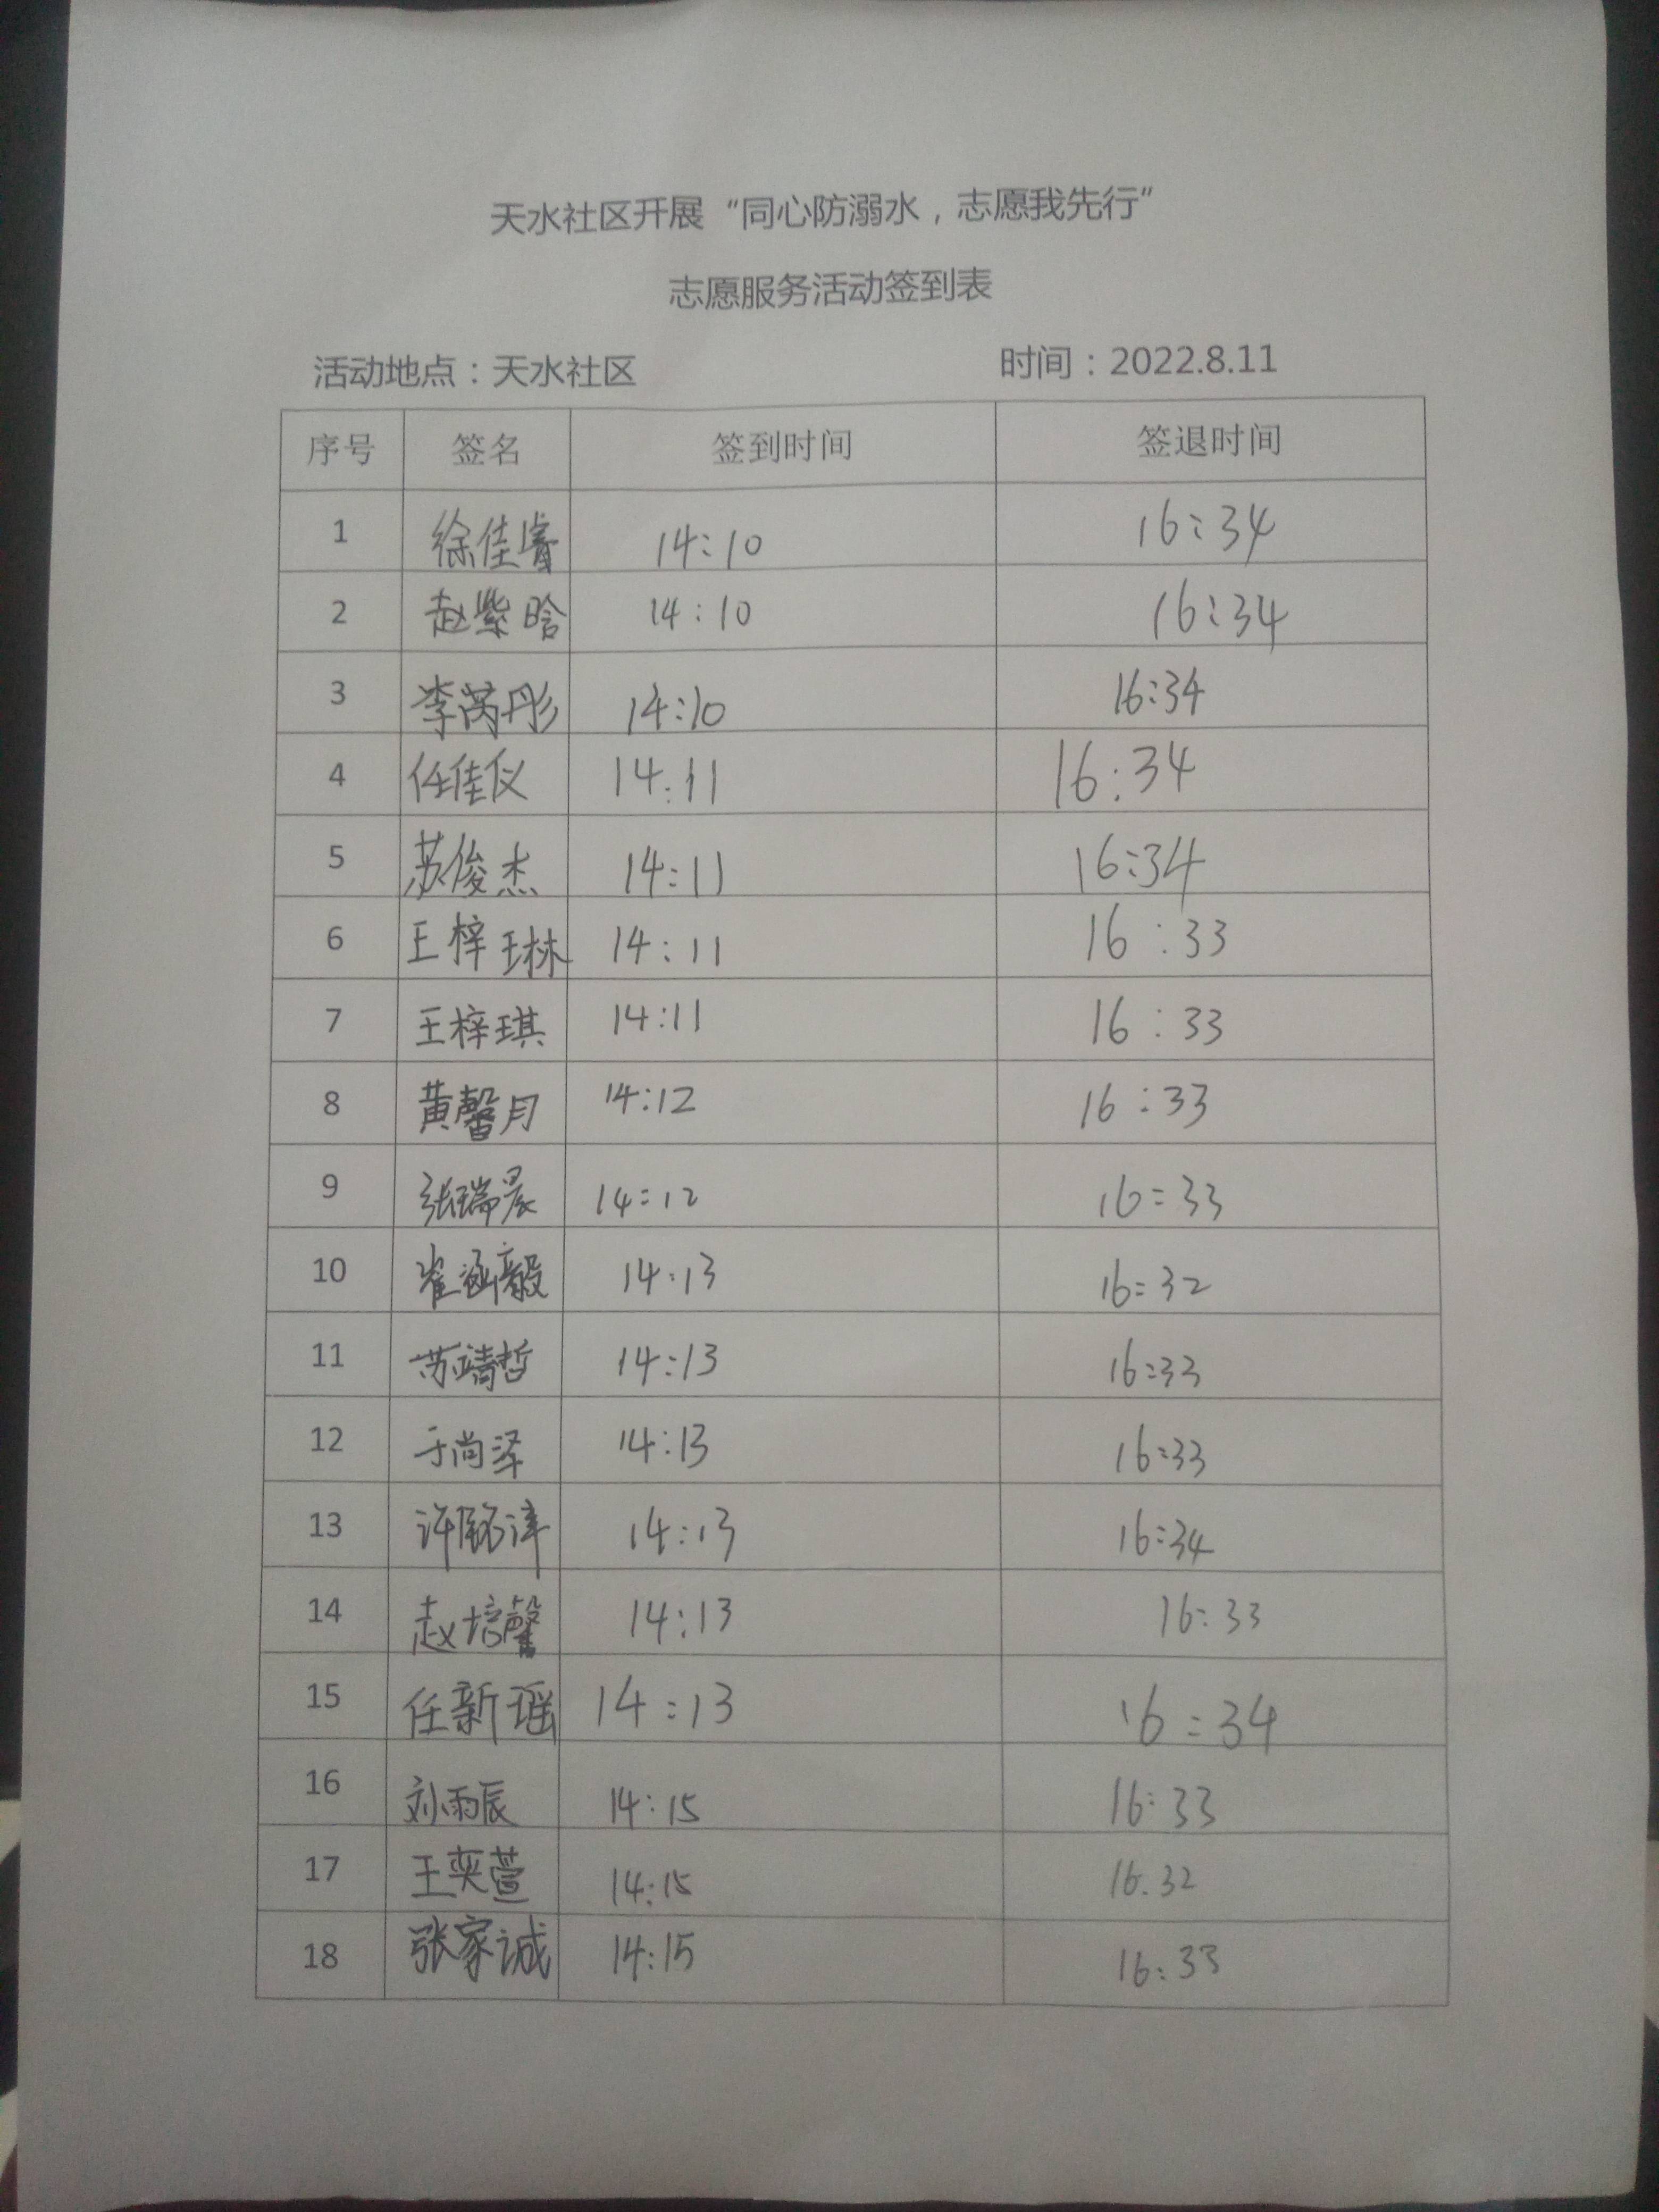 天水社区开展“同心防溺水，志愿我先行”
志愿服务活动签到表
活动地点：天水社区 时间：2022.8.11
序号 签名 签到时间 签退时间
1 徐佳睿 14:10 16:34
2 赵紫晗 14:10 16:34
3 李芮彤 14:10 16:34
4 任佳仪 14:11 16:34
5 苏俊杰 14:11 16:34
6 王梓琳 14:11 16:33
7 王梓琪 14:11 16:33
8 黄馨月 14:12 16:33
9 张瑞晨 14:12 16:33
10 崔涵毅 14:13 16:32
11 苏靖哲 14:13 16:33
12 于尚泽 14:13 16:33
13 许 14:13 16:34
14 赵培馨 14:13 16:33
15 任新瑶 14:13 16:34
16 刘雨辰 14:15 16:33
17 王奕萱 14:15 16.32
18 张家诚 14:15 16:33